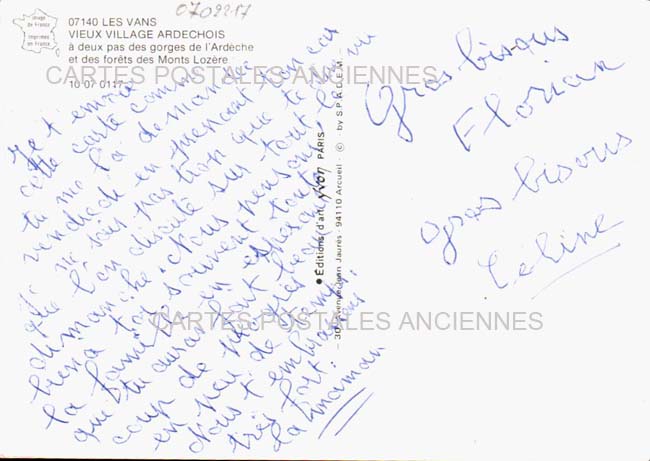 image
de France
imprimée
en France
07140 LES VANS
VIEUX VILLAGE ARDECHOIS
à deux pas des gorges de l'Ardèche
et des forêts des Monts Lozère
10 07 0117
0709217
CARTES POSTALES ANCIENNES
Je t'envoie
cette carte comme
tu me l'a demandé
vendredi en prenant ton car
Je ne sais pas trop que te dire vu
que l'on discute sur tout le
dimanche. Nous pensons
bien à toi souvent toute
la famille en espérant
que tu auras bientôt
coup de
en peu de temps
Nous t'embrassons
très fort.
La maman
Editions d'art YVON PARIS
30, Avenue Jean Jaurès - 94110 Arcueil - © - by S.P.A.D.E.M.
Gros bisous
Florian
gros bisous
Céline
CARTES POSTALES ANCIENNES